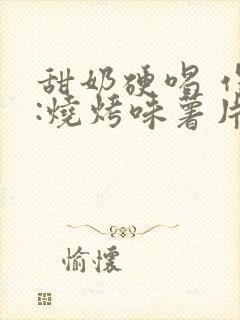 甜奶硬唱
:燒烤味薯片
愉懷